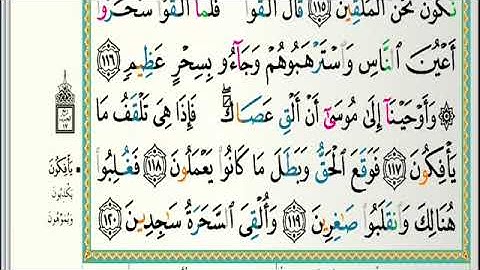 نَّكُونَ نَحْنُ ٱلْمُلْقِينَ ١١٥ قَالَ أَلْقُوا۟ ۖ فَلَمَّآ أَلْقَوْا۟ سَحَرُوٓا۟
أَعْيُنَ ٱلنَّاسِ وَٱسْتَرْهَبُوهُمْ وَجَآءُو بِسِحْرٍ عَظِيمٍ ١١٦
۞ وَأَوْحَيْنَآ إِلَىٰ مُوسَىٰٓ أَنْ أَلْقِ عَصَاكَ ۖ فَإِذَا هِىَ تَلْقَفُ مَا
يَأْفِكُونَ ١١٧ فَوَقَعَ ٱلْحَقُّ وَبَطَلَ مَا كَانُوا۟ يَعْمَلُونَ ١١٨ فَغُلِبُوا۟
هُنَالِكَ وَٱنقَلَبُوا۟ صَٰغِرِينَ ١١٩ وَأُلْقِىَ ٱلسَّحَرَةُ سَٰجِدِينَ ١٢٠
يَأْفِكُونَ